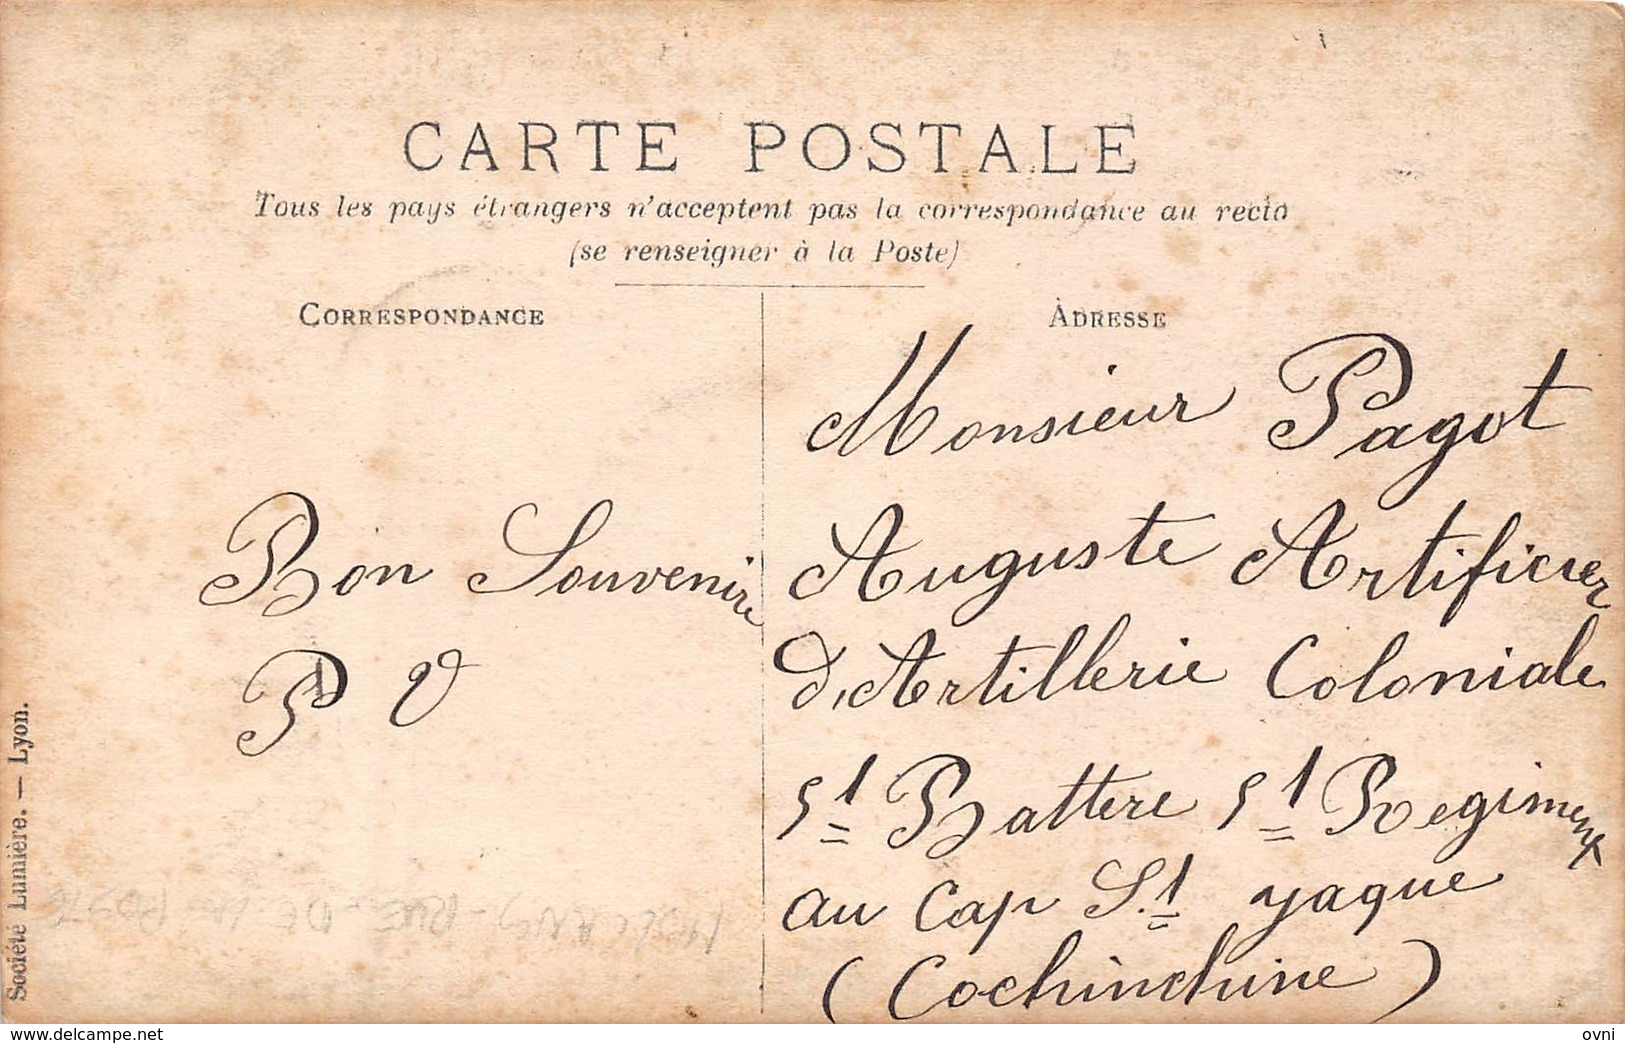 CARTE POSTALE
Tous les pays étrangers n'acceptent pas la correspondance au recto
(se renseigner à la Poste)
CORRESPONDANCE
ADRESSE
Bon Souvenire
P V
Monsieur Pagot
Auguste Artificier
d'Artillerie Coloniale
5t Battere 5t Regiment
au Cap St yaque
(Cochinchine)
Société Lumière. — Lyon.
RUE - DE LA POSTE
www.delcampe.net
ovni